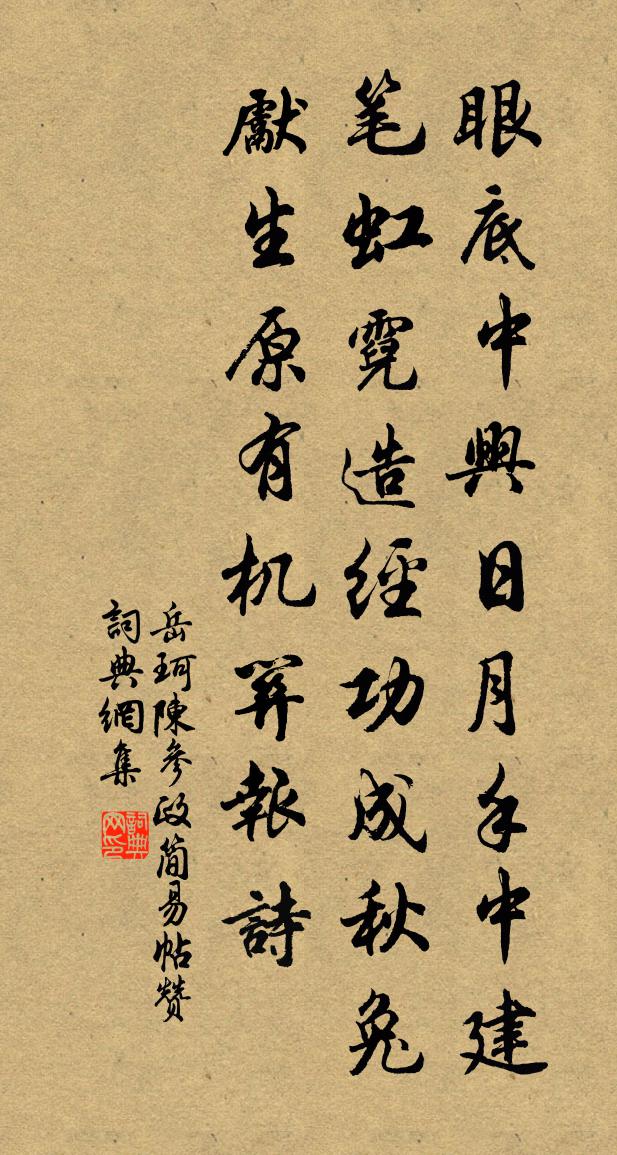 眼底中興日月手中建
笔虹霓造經功成秋兔
獻生原有机報詩
岳珂陳參政简易帖赞
詞典網集
詞典网印